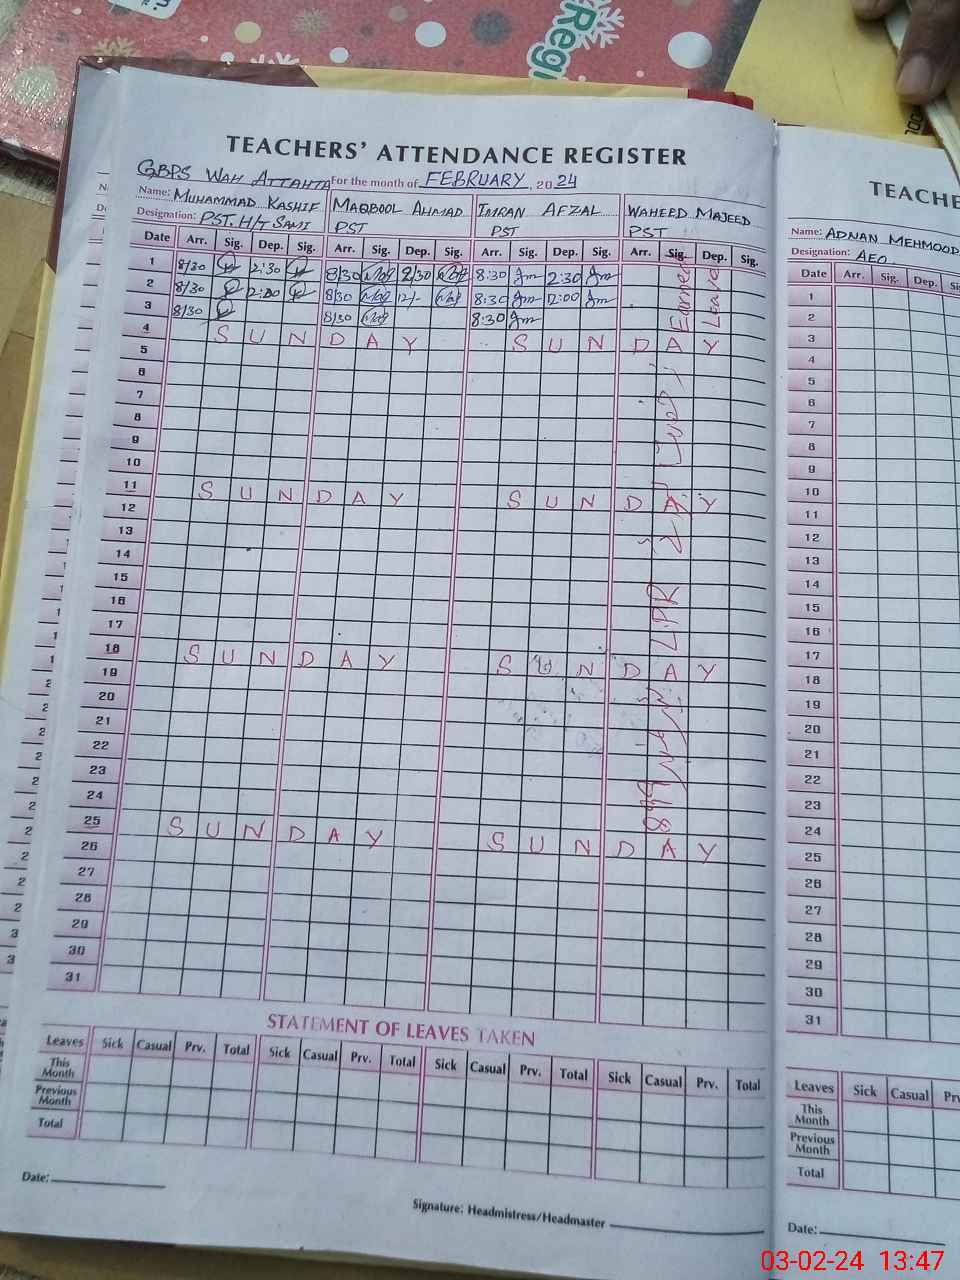 Regi
TEACHERS' ATTENDANCE REGISTER
GBPS WAH ATTAHTA For the month of FEBRUARY, 2024
Name: MUHAMMAD KASHIF MAQBOOL AHMAD IMRAN AFZAL WAHEED MAJEED
Designation: PST. H/T SAMI PST PST PST
Date Arr. Sig. Dep. Sig. Arr. Sig. Dep. Sig. Arr. Sig. Dep. Sig. Arr. Sig. Dep. Sig.
1 8/30 2:30 8/30 2/30 8:30 2:30
2 8/30 12:00 8/30 12/- 8:30 12:00
3 8/30 8/30 8:30
Earned Leave
4 SUNDAY SUNDAY
5
6
7
8
9
10
11 SUNDAY SUNDAY
12
13
14
15
16
LPR
17
18 SUNDAY SUNDAY
19
20
21
22
23
24
25 SUNDAY SUNDAY
26
27
28
29
30
31
STATEMENT OF LEAVES TAKEN
Leaves Sick Casual Prv. Total Sick Casual Prv. Total Sick Casual Prv. Total Sick Casual Prv. Total
This Month
Previous Month
Total
Date:
Signature: Headmistress/Headmaster
TEACHE
Name: ADNAN MEHMOOD
Designation: AEO
Date Arr. Sig. Dep. Si
1
2
3
4
5
6
7
8
9
10
11
12
13
14
15
16
17
18
19
20
21
22
23
24
25
26
27
28
29
30
31
Leaves Sick Casual Pr
This Month
Previous Month
Total
Date:
03-02-24 13:47